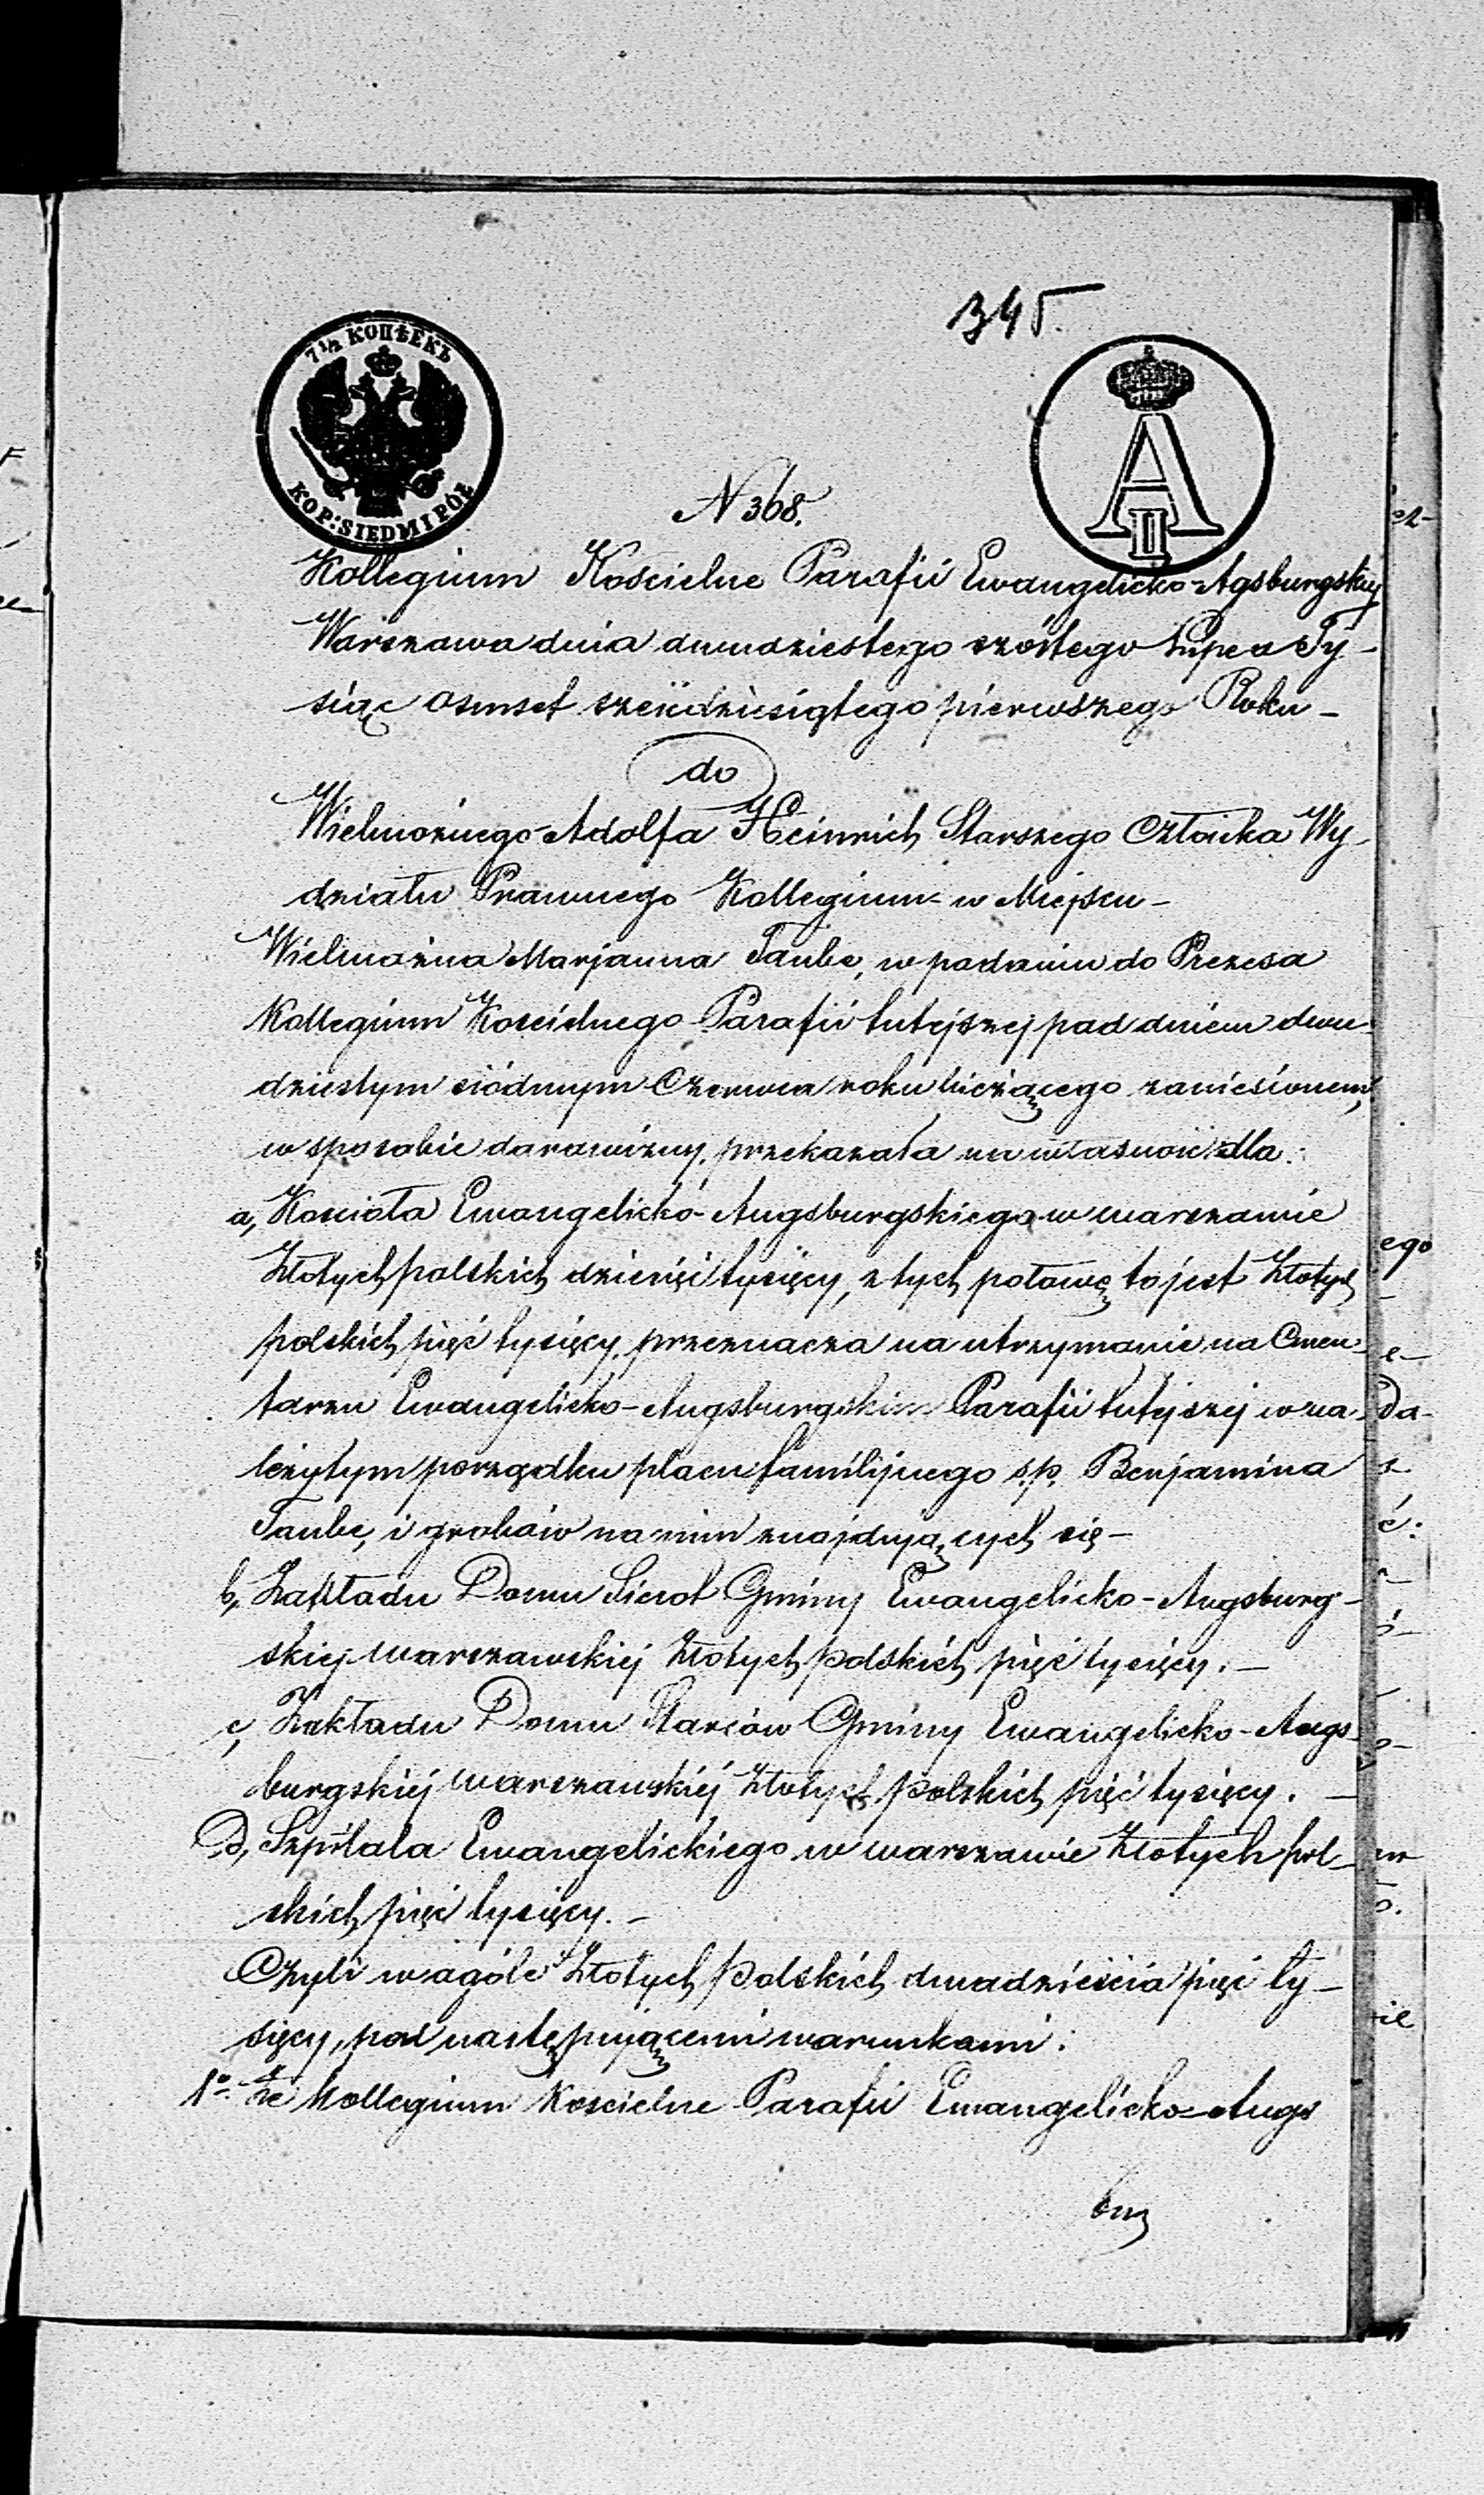 345.
7 1/2 КОПѢЕКЪ
KOP: SIEDM I PÓŁ
A II
N 368.
Kollegium Kościelne Parafii Ewangelicko-Agsburgskiej
Warszawa dnia dwudziestego szóstego Lipca Ty-
siąc osmset sześdziesiątego pierwszego Roku -
do
Wielmożnego Adolfa Heinrich Starszego Członka Wy-
działu Prawnego Kollegium w Miejscu -
Wielmożna Marjanna Taube, w podaniu do Prezesa
Kollegium Kościelnego Parafii tutejszej pod dniem dwu-
dziestym siódmym Czerwca roku bieżącego zaniesionem,
w sposobie darowizny, przekazała na własność dla:
a, Kościoła Ewangelicko-Augsburgskiego w warszawie
Złotych polskich dziesięć tysięcy, z tych połowę to jest Złotych
polskich pięć tysięcy, przeznacza na utrzymanie na Cmen-
tarzu Ewangelicko-Augsburgskim Parafii tutejszej w na-
leżytym porządku placu familijnego s.p. Benjamina
Taube, i grobów na nim znajdujących się -
b, Zakładu Domu Sierot Gminy Ewangelicko-Augsburg-
skiej warszawskiej Złotych polskich pięć tysięcy. -
c, Zakładu Domu Starców Gminy Ewangelicko-Augs-
burgskiej warszawskiej Złotych polskich pięć tysięcy. -
D, Szpitala Ewangelickiego w warszawie Złotych pol-
skich pięć tysięcy. -
Czyli w ogóle Złotych polskich dwadzieścia pięć ty-
sięcy, pod następującemi warunkami:
1o. że Kollegium Kościelne Parafii Ewangelicko-Augs
burg
ego
Da-